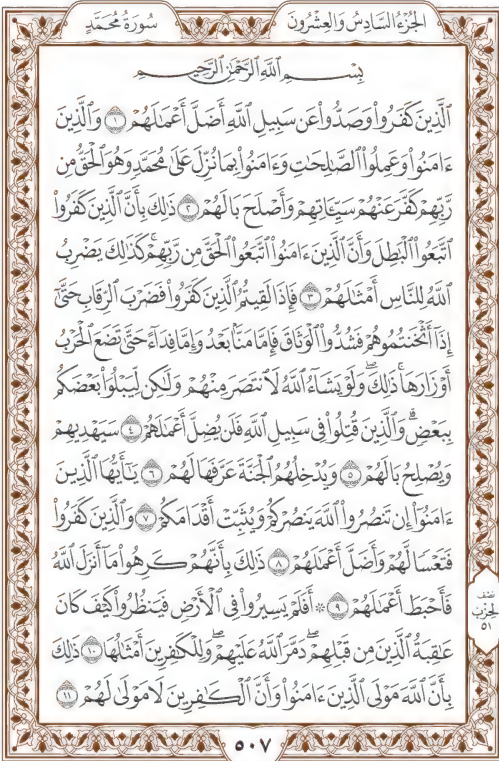 سُورَةُ مُحَمَّدٍ
الجُزْءُ السَّادِسُ وَالعِشْرُونَ
بِسْمِ اللَّهِ الرَّحْمَٰنِ الرَّحِيمِ
ٱلَّذِينَ كَفَرُواْ وَصَدُّواْ عَن سَبِيلِ ٱللَّهِ أَضَلَّ أَعْمَٰلَهُمْ ١ وَٱلَّذِينَ
ءَامَنُواْ وَعَمِلُواْ ٱلصَّٰلِحَٰتِ وَءَامَنُواْ بِمَا نُزِّلَ عَلَىٰ مُحَمَّدٍ وَهُوَ ٱلْحَقُّ مِن
رَّبِّهِمْ كَفَّرَ عَنْهُمْ سَيِّـَٔاتِهِمْ وَأَصْلَحَ بَالَهُمْ ٢ ذَٰلِكَ بِأَنَّ ٱلَّذِينَ كَفَرُواْ
ٱتَّبَعُواْ ٱلْبَٰطِلَ وَأَنَّ ٱلَّذِينَ ءَامَنُواْ ٱتَّبَعُواْ ٱلْحَقَّ مِن رَّبِّهِمْ ۚ كَذَٰلِكَ يَضْرِبُ
ٱللَّهُ لِلنَّاسِ أَمْثَٰلَهُمْ ٣ فَإِذَا لَقِيتُمُ ٱلَّذِينَ كَفَرُواْ فَضَرْبَ ٱلرِّقَابِ حَتَّىٰٓ
إِذَآ أَثْخَنتُمُوهُمْ فَشُدُّواْ ٱلْوَثَاقَ فَإِمَّا مَنَّۢا بَعْدُ وَإِمَّا فِدَآءً حَتَّىٰ تَضَعَ ٱلْحَرْبُ
أَوْزَارَهَا ۚ ذَٰلِكَ ۖ وَلَوْ يَشَآءُ ٱللَّهُ لَٱنتَصَرَ مِنْهُمْ وَلَٰكِن لِّيَبْلُوَاْ بَعْضَكُم
بِبَعْضٍ ۗ وَٱلَّذِينَ قُتِلُواْ فِي سَبِيلِ ٱللَّهِ فَلَن يُضِلَّ أَعْمَٰلَهُمْ ٤ سَيَهْدِيهِمْ
وَيُصْلِحُ بَالَهُمْ ٥ وَيُدْخِلُهُمُ ٱلْجَنَّةَ عَرَّفَهَا لَهُمْ ٦ يَٰٓأَيُّهَا ٱلَّذِينَ
ءَامَنُوٓاْ إِن تَنصُرُواْ ٱللَّهَ يَنصُرْكُمْ وَيُثَبِّتْ أَقْدَامَكُمْ ٧ وَٱلَّذِينَ كَفَرُواْ
فَتَعْسًا لَّهُمْ وَأَضَلَّ أَعْمَٰلَهُمْ ٨ ذَٰلِكَ بِأَنَّهُمْ كَرِهُواْ مَآ أَنزَلَ ٱللَّهُ
فَأَحْبَطَ أَعْمَٰلَهُمْ ٩ ۞ أَفَلَمْ يَسِيرُواْ فِي ٱلْأَرْضِ فَيَنظُرُواْ كَيْفَ كَانَ
عَٰقِبَةُ ٱلَّذِينَ مِن قَبْلِهِمْ ۖ دَمَّرَ ٱللَّهُ عَلَيْهِمْ ۖ وَلِلْكَٰفِرِينَ أَمْثَٰلُهَا ١٠ ذَٰلِكَ
بِأَنَّ ٱللَّهَ مَوْلَى ٱلَّذِينَ ءَامَنُواْ وَأَنَّ ٱلْكَٰفِرِينَ لَا مَوْلَىٰ لَهُمْ ١١
نصف
الحزب
٥١
٥٠٧